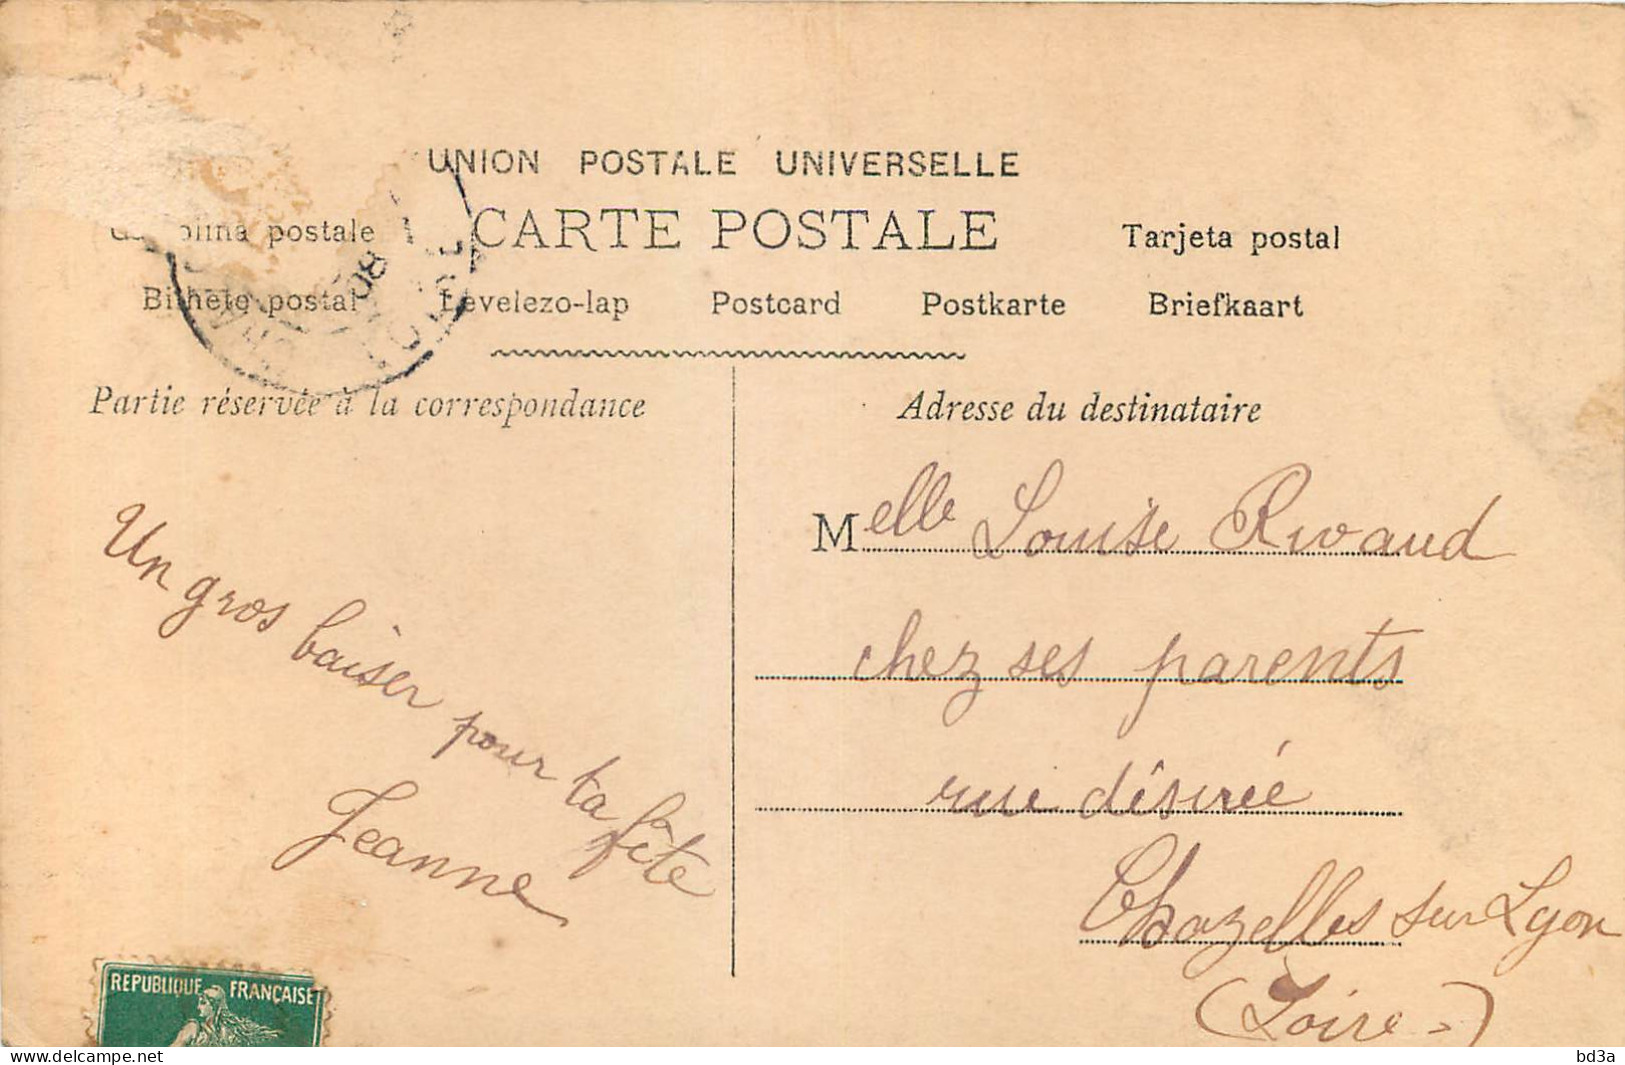 UNION POSTALE UNIVERSELLE
postale CARTE POSTALE Tarjeta postal
Bilhete postal Levelezo-lap Postcard Postkarte Briefkaart
Partie réservée à la correspondance
Adresse du destinataire
Un gros baiser pour ta fête
Jeanne
Melle Louise Rivaud
chez ses parents
rue désirée
Chazelles sur Lyon
(Loire)
08
REPUBLIQUE FRANÇAISE
www.delcampe.net
bd3a